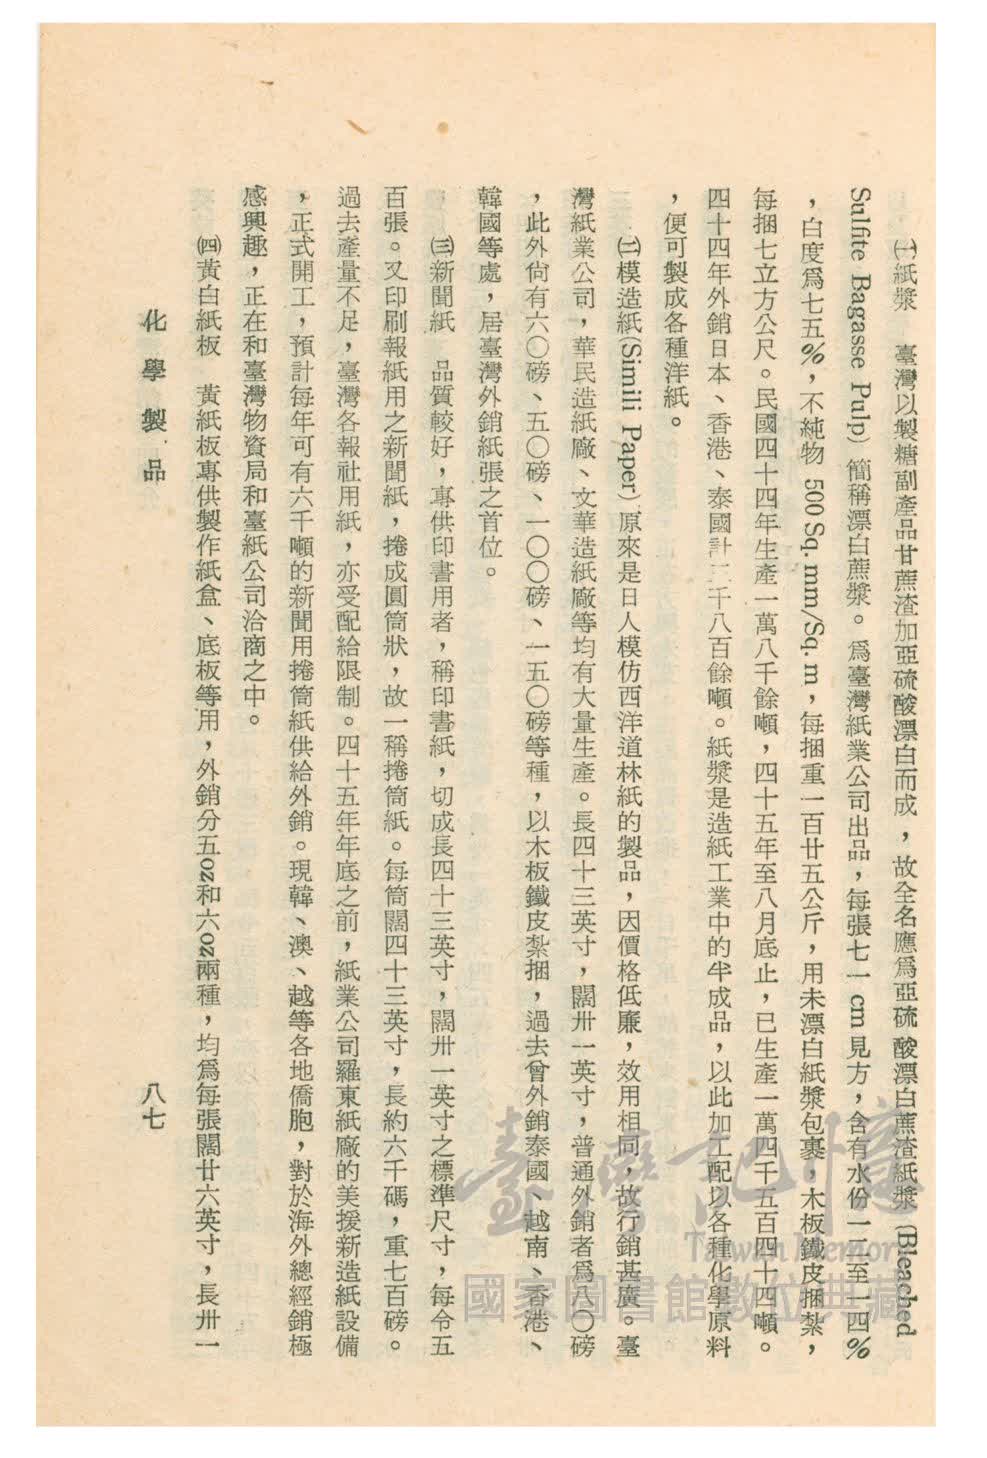 ㈠紙漿　臺灣以製糖副產品甘蔗渣加亞硫酸漂白而成，故全名應爲亞硫酸漂白蔗渣紙漿 (Bleached
Sulfite Bagasse Pulp) 簡稱漂白蔗漿。爲臺灣紙業公司出品，每張七一 cm 見方，含有水份一二至一四%
，白度爲七五%，不純物 500 Sq. mm/Sq. m，每捆重一百廿五公斤，用未漂白紙漿包裹，木板鐵皮捆紮，
每捆七立方公尺。民國四十四年生產一萬八千餘噸，四十五年至八月底止，已生產一萬四千五百四十四噸。
四十四年外銷日本、香港、泰國計二千八百餘噸。紙漿是造紙工業中的半成品，以此加工配以各種化學原料
，便可製成各種洋紙。
㈡模造紙(Simili Paper) 原來是日人模仿西洋道林紙的製品，因價格低廉，效用相同，故行銷甚廣。臺
灣紙業公司，華民造紙廠、文華造紙廠等均有大量生產。長四十三英寸，闊卅一英寸，普通外銷者爲八〇磅
，此外尙有六〇磅、五〇磅、一〇〇磅、一五〇磅等種，以木板鐵皮紮捆，過去曾外銷泰國、越南、香港、
韓國等處，居臺灣外銷紙張之首位。
㈢新聞紙　品質較好，專供印書用者，稱印書紙，切成長四十三英寸，闊卅一英寸之標準尺寸，每令五
百張。又印刷報紙用之新聞紙，捲成圓筒狀，故一稱捲筒紙。每筒闊四十三英寸，長約六千碼，重七百磅。
過去產量不足，臺灣各報社用紙，亦受配給限制。四十五年年底之前，紙業公司羅東紙廠的美援新造紙設備
，正式開工，預計每年可有六千噸的新聞用捲筒紙供給外銷。現韓、澳、越等各地僑胞，對於海外總經銷極
感興趣，正在和臺灣物資局和臺紙公司洽商之中。
㈣黃白紙板　黃紙板專供製作紙盒、底板等用，外銷分五oz和六oz兩種，均爲每張闊廿六英寸，長卅一
化學製品　八七
臺灣記憶
Taiwan Memory
國家圖書館數位典藏